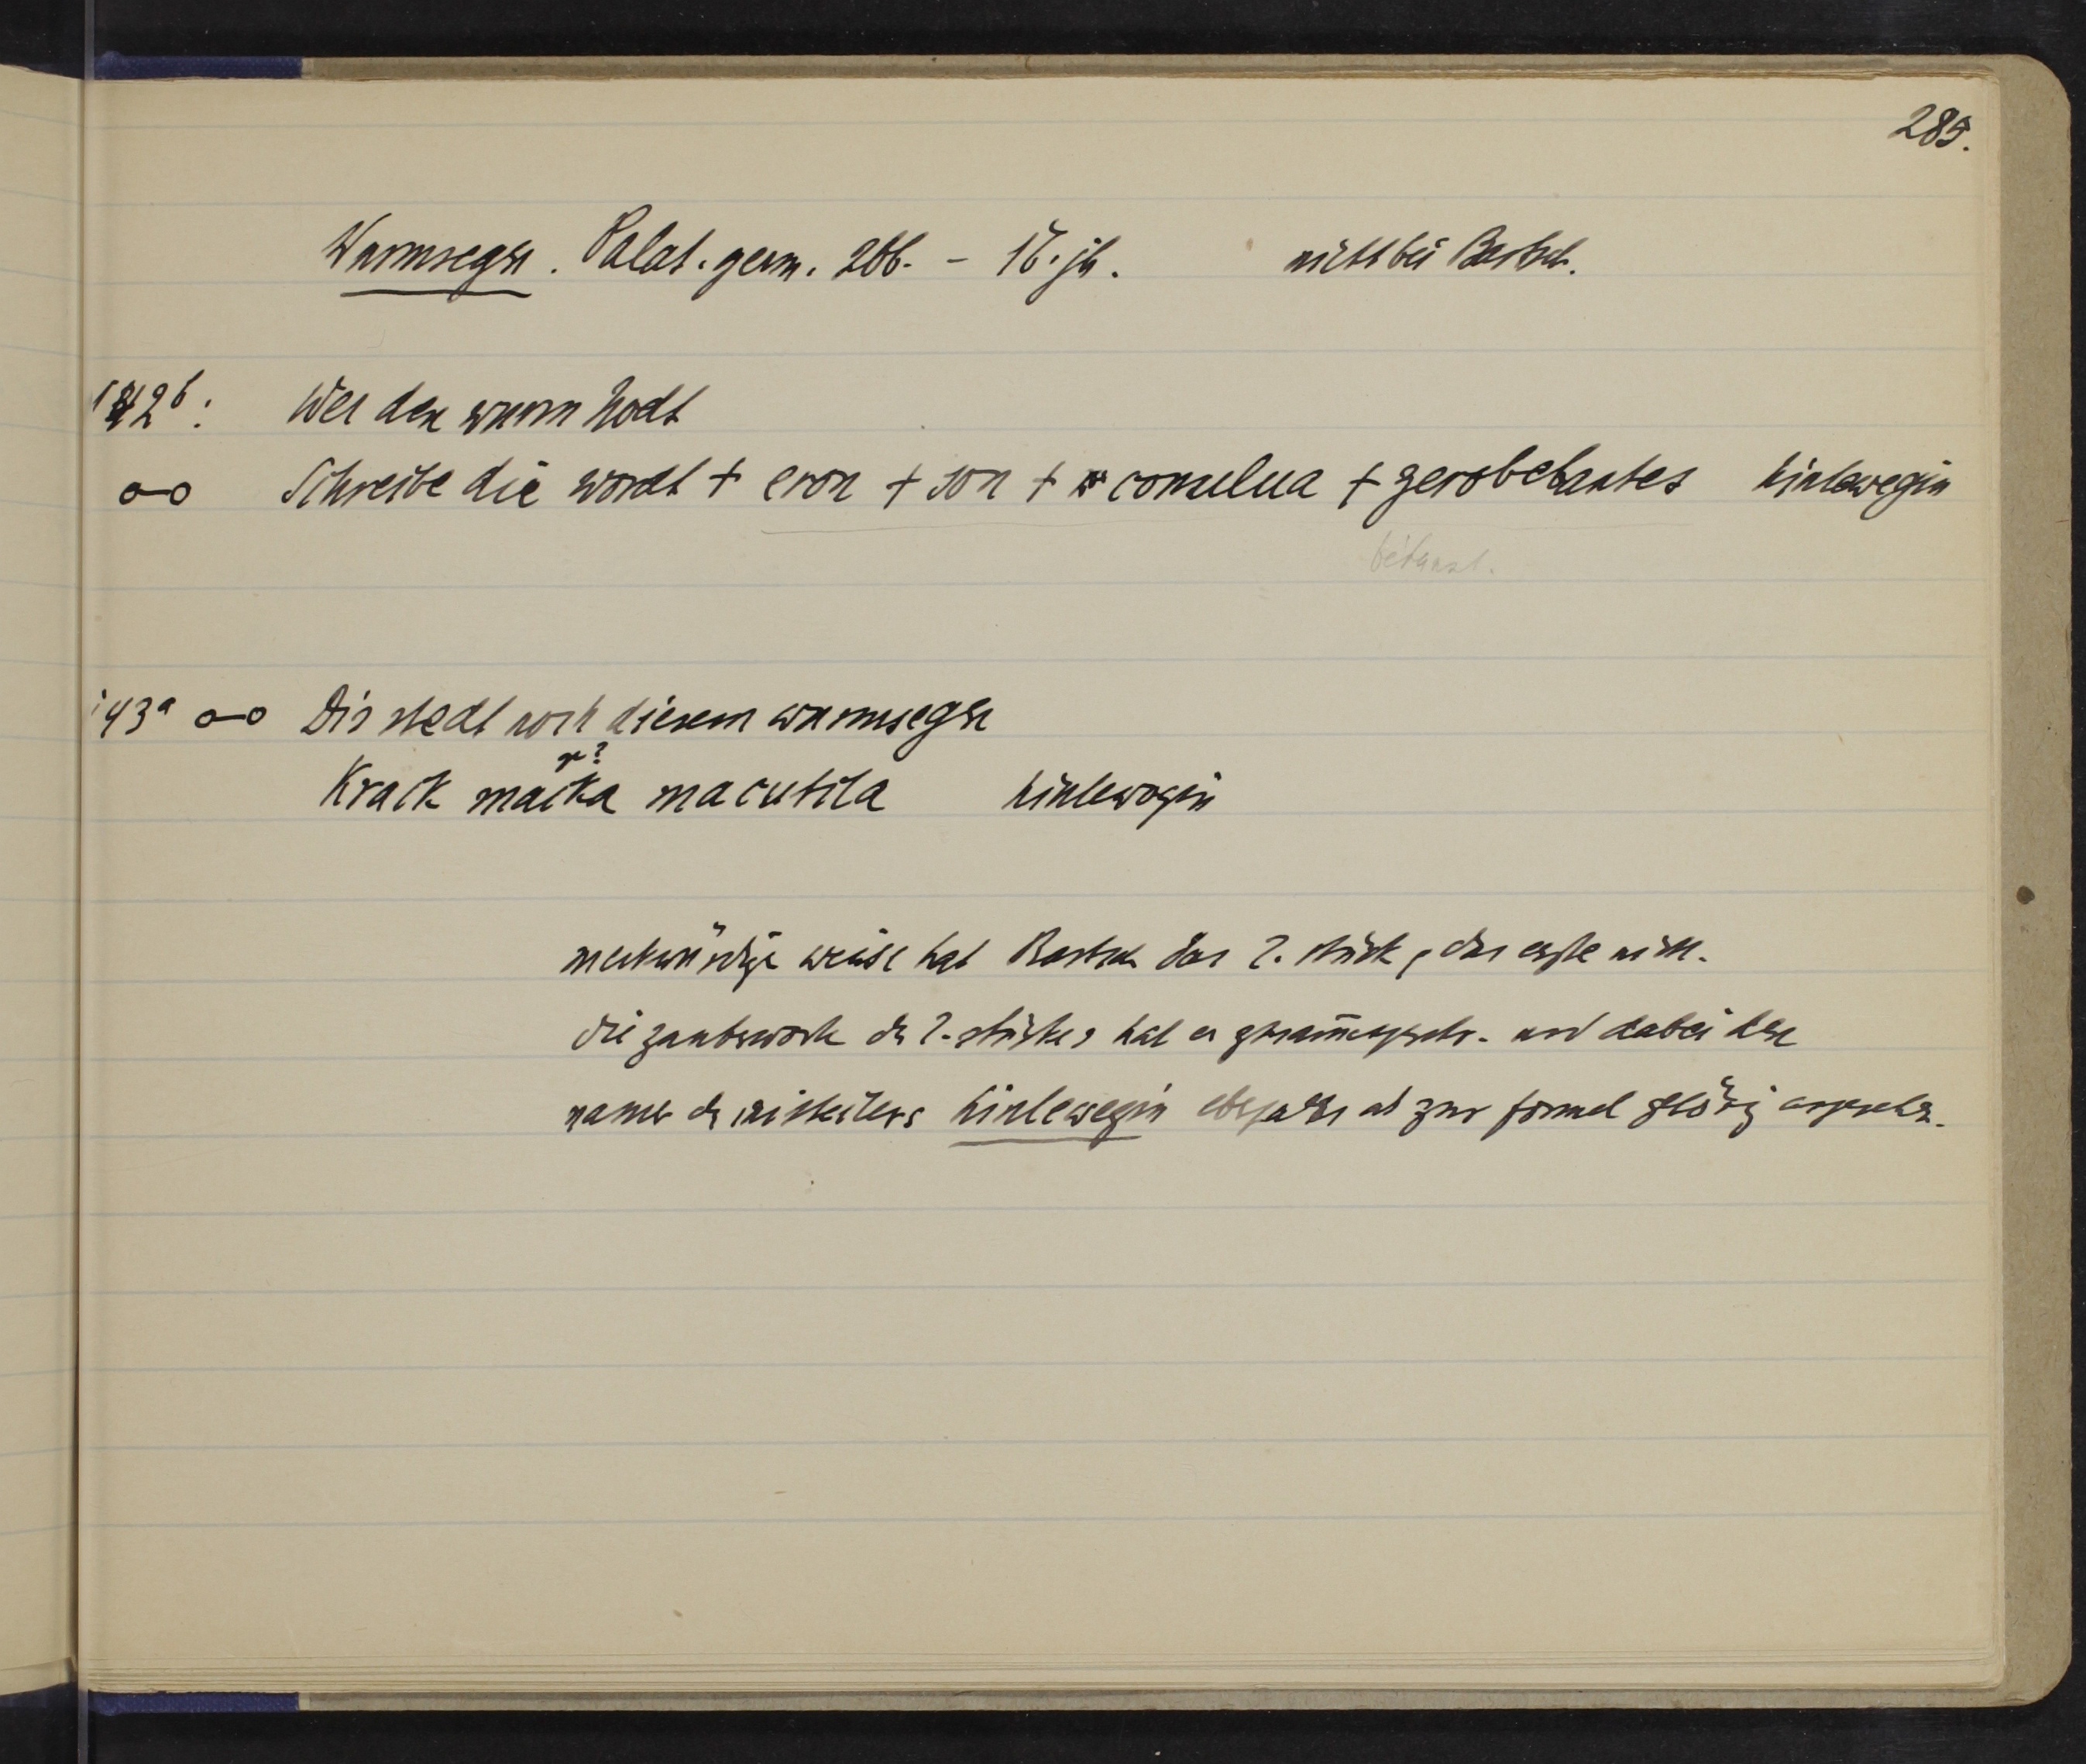 285.
Wurmsegen. Palat. germ. 266. - 16. jh. nicht bei Bartsch.
142b: Wer den wurm hodt
o-o Schreibe die wordt + eron + son + comulua + gerobetantes hinlewegin
143a o-o Dis stedt noch diesem wurmsegen
r?
Krack macka macutila hinlewegin
merkwürdige weise hat Bartsch das 2. stück, das erste nicht.
die zauberworte des 2. stückes hat er zusammengeschr. und dabei den
namen des mitteilers hinlewegin ebenfalls als zur formel gehörig angesehen.